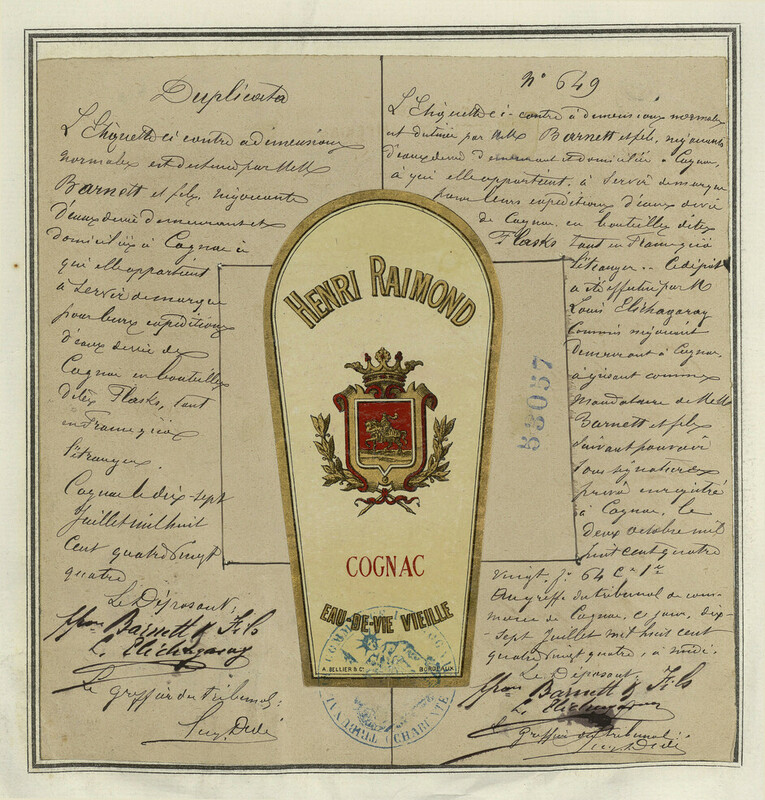 Duplicata
L'Etiquette ci contre a dimensions
normales est destinée par MM
Barnett et fils, négociants
d'eaux de vie demeurant et
domiciliés à Cognac à
qui elle appartient
à servir de marque
pour leurs expéditions
d'eaux de vie de
Cognac en bouteilles
dites Flasks, tant
en France qu'à
l'étranger.
Cognac le dix-sept
Juillet mil huit
Cent quatre vingt
quatre
Le Déposant:
Barnett & Fils
L. Elichagaray
Le greffier du tribunal:
HENRI RAIMOND
COGNAC
EAU-DE-VIE VIEILLE
A. BELLIER & Cº BORDEAUX
TRIBUNAL
CHARENTE
N° 649
L'Etiquette ci-contre à dimensions normales
est destinée par MM Barnett et fils, négociants
d'eaux de vie demeurant et domiciliés à Cognac,
à qui elle appartient, à servir de marque
pour leurs expéditions d'eaux de vie
de Cognac en bouteilles dites
Flasks tant en France qu'à
l'étranger. Ce dépôt
a été effectué par M
Louis Elichagaray
Commis négociant
demeurant à Cognac,
agissant comme
Mandataire de MM
Barnett et fils
suivant pouvoir
sous signatures
privé enregistré
à Cognac, le
deux octobre mil
huit cent quatre
vingt, fº 64 Cº 1re
Au greffe du tribunal de com-
merce de Cognac, ce jour, dix-
sept Juillet mil huit cent
quatre vingt quatre, à midi.
Le Déposant:
Barnett & Fils
L. Elichagaray
Le greffier du tribunal:
53057